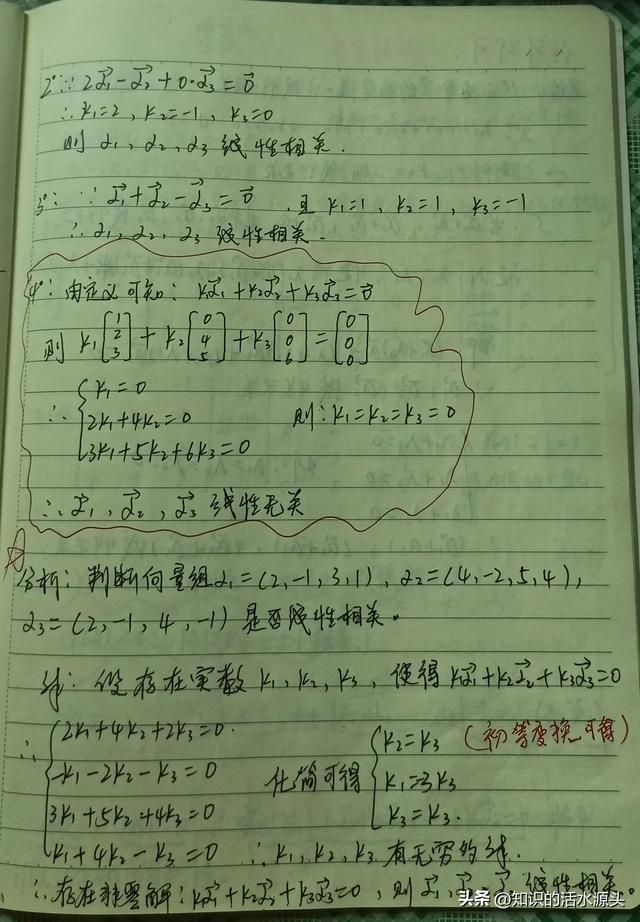 2°: ∵ 2α⃗₁-α⃗₂+0·α⃗₃=0⃗
∴ k₁=2, k₂=-1, k₃=0
则 α₁, α₂, α₃ 线性相关.
3°: ∵ α⃗₁+α⃗₂-α⃗₃=0⃗ 且 k₁=1, k₂=1, k₃=-1
∴ α₁, α₂, α₃ 线性相关.
4°: 由定义可知: k₁α⃗₁+k₂α⃗₂+k₃α⃗₃=0⃗
则 k₁[1 2 3]+k₂[0 4 5]+k₃[0 0 6]=[0 0 0]
k₁=0
∴ 2k₁+4k₂=0 则: k₁=k₂=k₃=0
3k₁+5k₂+6k₃=0
∴ α⃗₁, α⃗₂, α⃗₃ 线性无关
分析: 判断向量组α₁=(2,-1,3,1), α₂=(4,-2,5,4),
α₃=(2,-1,4,-1) 是否线性相关。
解: 设存在实数 k₁, k₂, k₃, 使得 k₁α⃗₁+k₂α⃗₂+k₃α⃗₃=0
∴ 2k₁+4k₂+2k₃=0. k₂=k₃ (初等变换可得)
-k₁-2k₂-k₃=0 化简可得 k₁=3k₃
3k₁+5k₂+4k₃=0 k₃=k₃.
k₁+4k₂-k₃=0 ∴ k₁, k₂, k₃ 有无穷的解.
∴ 存在非零解: k₁α⃗₁+k₂α⃗₂+k₃α⃗₃=0, 则 α⃗₁, α⃗₂, α⃗₃ 线性相关.
头条 @知识的活水源头